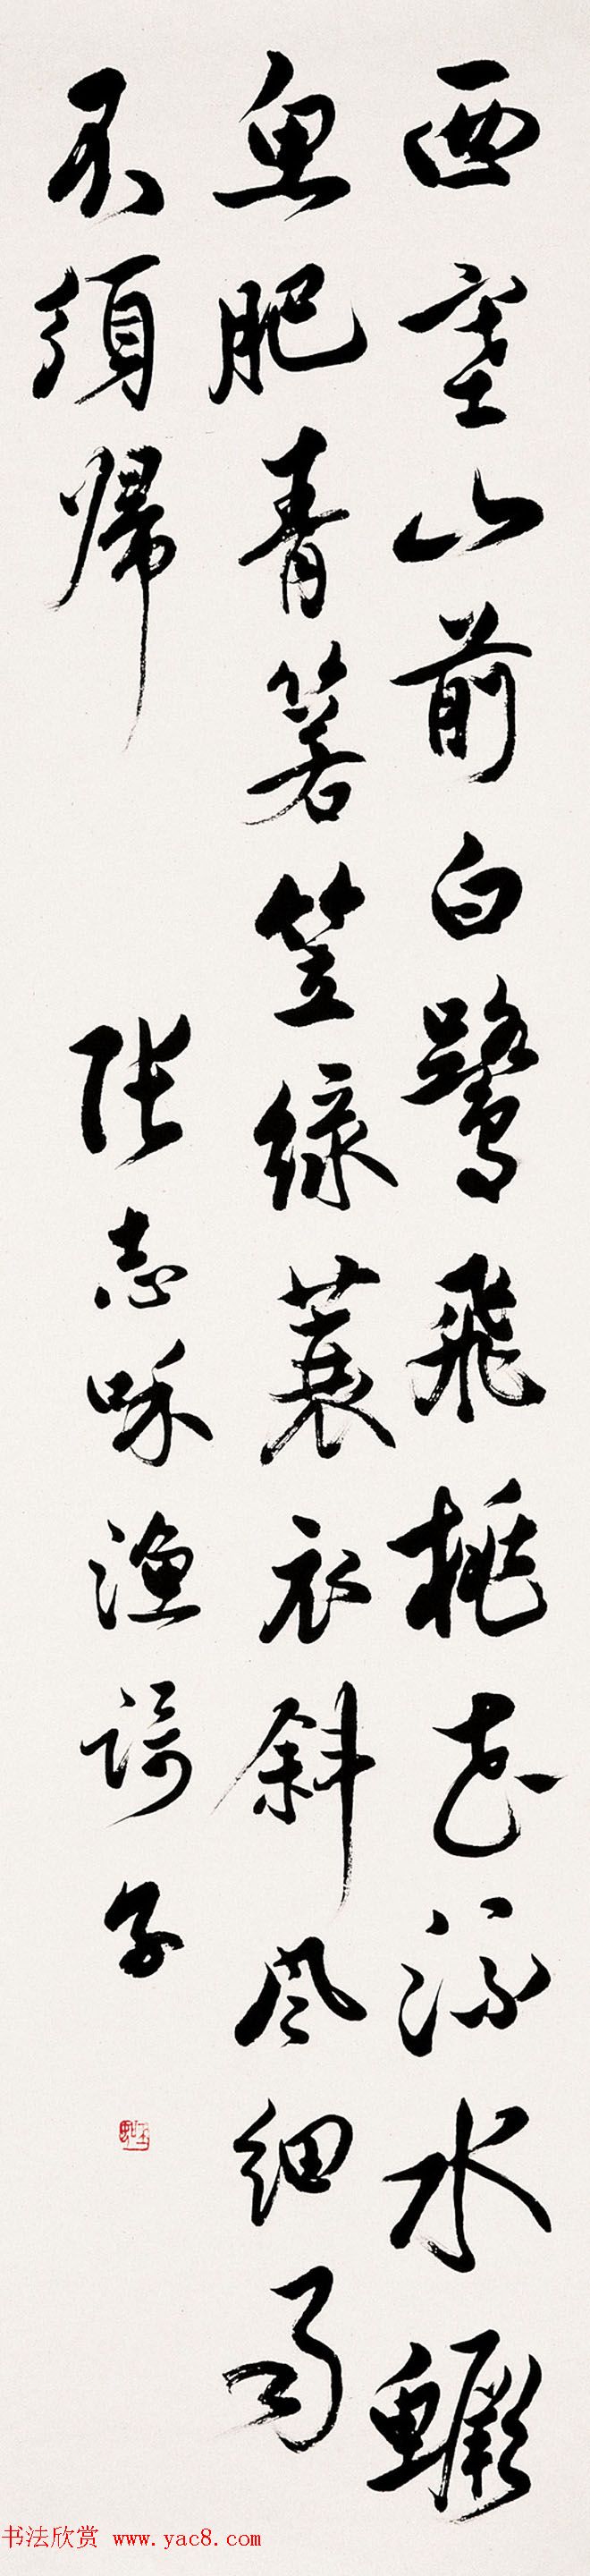 西塞山前白鹭飞桃花流水鳜
鱼肥青箬笠绿蓑衣斜风细雨
不须归
张志和渔歌子
书法欣赏 www.yac8.com